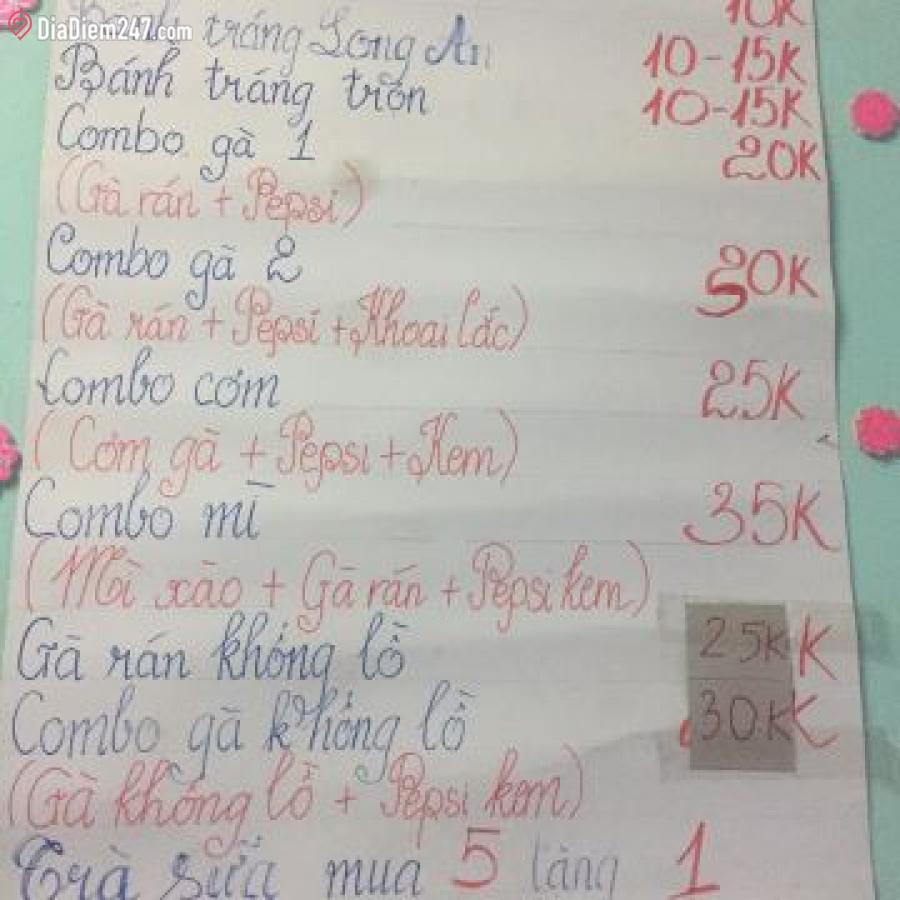 DiaDiem247.com
10K
tráng Long An 10-15K
Bánh tráng trộn 10-15K
Combo gà 1 20K
(Gà rán + Pepsi)
Combo gà 2 30K
(Gà rán + Pepsi + Khoai lắc)
Combo cơm 25K
(Cơm gà + Pepsi + Kem)
Combo mì 35K
(Mì xào + Gà rán + Pepsi kem)
Gà rán khổng lồ 25K K
Combo gà khổng lồ 30K K
(Gà khổng lồ + Pepsi kem)
Trà sữa mua 5 tặng 1